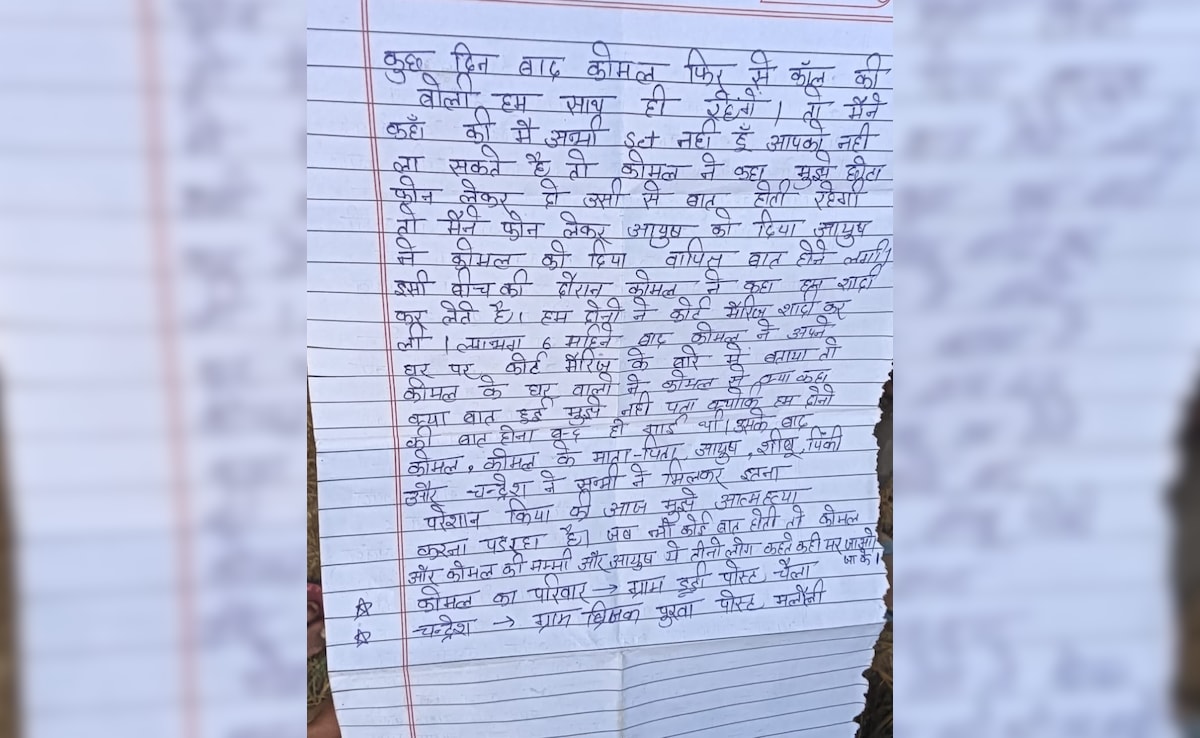 कुछ दिन बाद कोमल फिर से कॉल की
बोली हम साथ ही रहेगें। तो मैंने
कहाँ की मै अभी set नही हूँ आपको नही
ला सकते है तो कोमल ने कहा मुझे छोटा
फोन लेकर दो उसी से बात होती रहेगी
तो मैंने फोन लेकर आयुष को दिया आयुष
ने कोमल को दिया वापिस बात होने लगी।
इसी बीच की दौरान कोमल ने कहा हम शादी
कर लेते है। हम दोनो ने कोर्ट मैरिज शादी कर
ली। लगभग 6 महिने बाद कोमल ने अपने
घर पर कोर्ट मैरिज के बारे में बताया तो
कोमल के घर वालो ने कोमल से क्या कहा
क्या बात हुई मुझे नही पता क्योंकि हम दोनो
की बात होना बन्द हो गई थी। उसके बाद
कोमल, कोमल के माता-पिता, आयुष, शीबू, पिंकी
और चन्द्रेश ने सभी ने मिलकर इतना
परेशान किया की आज मुझे आत्महत्या
करना पड़ रहा है। जब भी कोई बात होती तो कोमल
और कोमल की मम्मी और आयुष ये तीनो लोग कहते कही मर जाओ
जा के।
☆ कोमल का परिवार → ग्राम पोस्ट चैला
☆ चन्द्रेश → ग्राम पुरवा पोस्ट मलौली